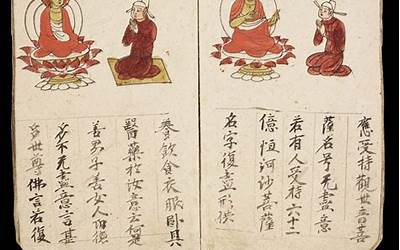 應受持觀世音菩
薩名号无盡意
若有人受持六十二
億恒河沙菩薩
名字復盡形供
養飲食衣服卧具
醫藥於汝意云何是
善男子善女人功德
多不无盡意言甚
多世尊佛言若復